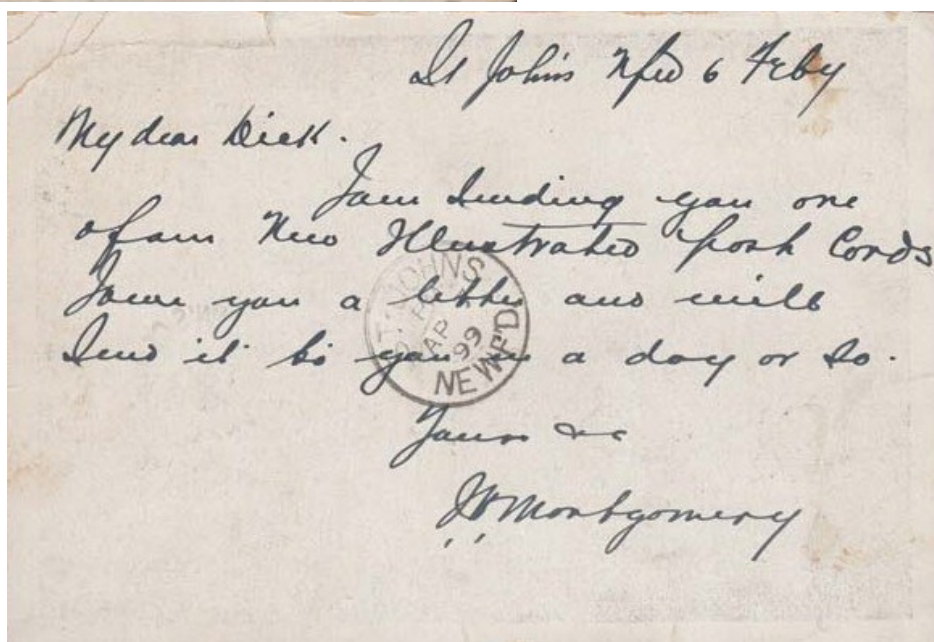 St Johns Nfld 6 Feby
My dear Dick.
I am sending you one
of our New Illustrated Post Cards
I owe you a letter and will
send it to you in a day or so.
Yours &c
JW Montgomery
ST. JOHN'S
AP
99
NEWF'D.